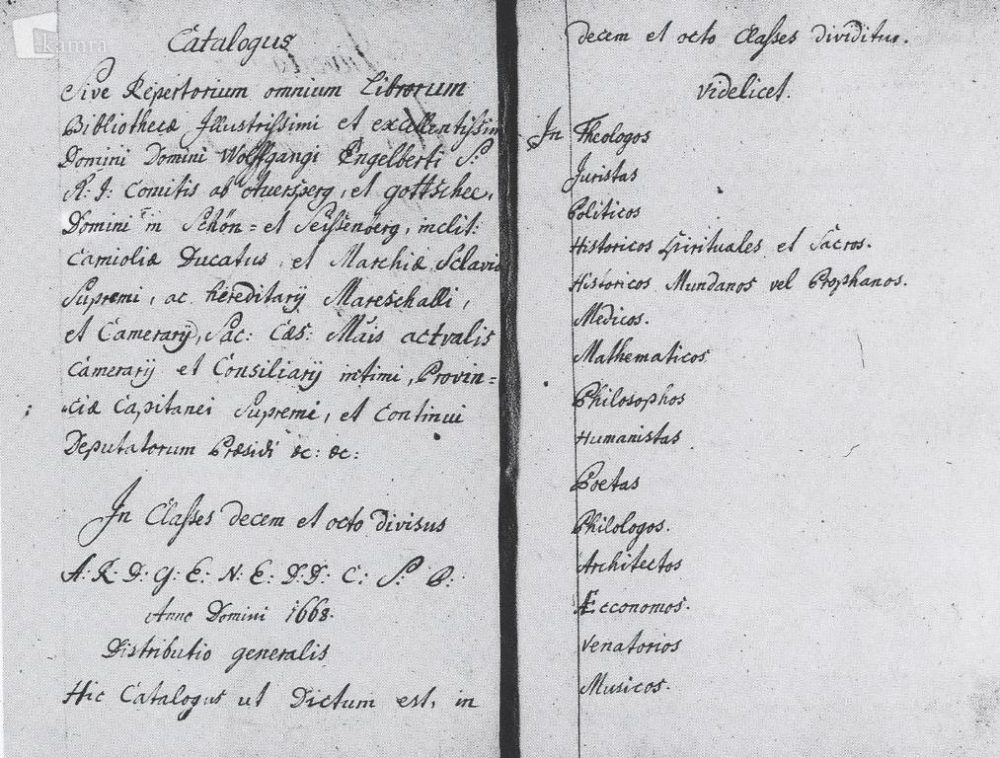 kamra
Catalogus
Sive Repertorium omnium Librorum
Bibliothecæ Illustrissimi et excellentissimi
Domini Domini Wolffgangi Engelberti S:
R: I: Comitis ab Auersperg, et Gottschee,
Domini in Schön= et Seissenberg, inclit:
Carnioliæ Ducatus, et Marchiæ Sclavo
Supremi, ac hereditarij Mareschalli,
et Camerarij, Sac: Cæs: Mäis actvalis
Camerarij et Consiliarij intimi, Provin=
ciæ Capitanei Supremi, et Continui
Deputatorum Præsidi &c: &c:
In Classes decem et octo divisus
A: R: D: G: E: N: E: D: D: C: S: P:
Anno Domini 1668.
Distributio generalis
Hic Catalogus ut Dictum est, in
decem et octo Classes dividitur.
Videlicet.
In Theologos
Juristas
Politicos
Historicos Spirituales et Sacros.
Historicos Mundanos vel Prophanos.
Medicos.
Mathematicos
Philosophos
Humanistas
Poetas
Philologos.
Architectos
Æcconomos.
Venatorios
Musicos.